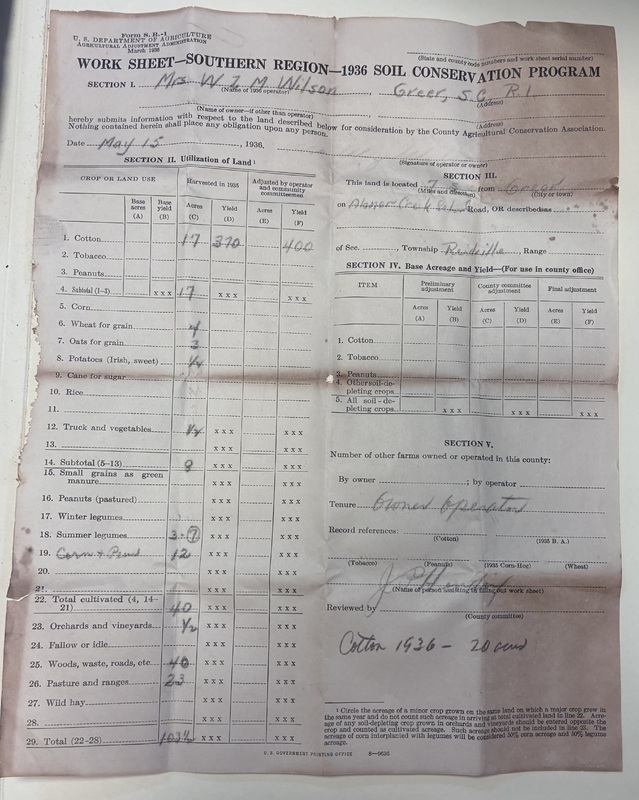 Form S. R.-1
U. S. DEPARTMENT OF AGRICULTURE
AGRICULTURAL ADJUSTMENT ADMINISTRATION
March 1936
(State and county code numbers and work sheet serial number)
WORK SHEET—SOUTHERN REGION—1936 SOIL CONSERVATION PROGRAM
SECTION I. Mrs. W. Z. M. Wilson, Greer, S.C. R. 1.
(Name of 1936 operator) (Address)
(Name of owner—if other than operator) (Address)
hereby submits information with respect to the land described below for consideration by the County Agricultural Conservation Association.
Nothing contained herein shall place any obligation upon any person.
Date May 15, 1936.
(Signature of operator or owner)
SECTION II. Utilization of Land ¹
CROP OR LAND USE
Harvested in 1935
Adjusted by operator and community committeemen
Base acres (A) Base yield (B) Acres (C) Yield (D) Acres (E) Yield (F)
1. Cotton 17 370 400
2. Tobacco
3. Peanuts
4. Subtotal (1-3) x x x 17 x x x x x x
5. Corn
6. Wheat for grain 4
7. Oats for grain 3
8. Potatoes (Irish, sweet)
9. Cane for sugar
10. Rice
11.
12. Truck and vegetables x x x x x x
13. x x x x x x
14. Subtotal (5-13) 8 x x x x x x
15. Small grains as green manure x x x x x x
16. Peanuts (pastured) x x x x x x
17. Winter legumes x x x x x x
18. Summer legumes 3 7 x x x x x x
19. Corn & Peas 12 x x x x x x
20. x x x x x x
21. x x x x x x
22. Total cultivated (4, 14-21) 40 x x x x x x
23. Orchards and vineyards ½ x x x x x x
24. Fallow or idle x x x x x x
25. Woods, waste, roads, etc. 40 x x x x x x
26. Pasture and ranges 23 x x x x x x
27. Wild hay x x x x x x
28. x x x x x x
29. Total (22-28) 103½ x x x x x x
SECTION III.
This land is located from Greer
(Miles and direction) (City or town)
on Abner Creek Road, OR described as
of Sec. , Township Reidville, Range
SECTION IV. Base Acreage and Yield—(For use in county office)
ITEM
Preliminary adjustment
County committee adjustment
Final adjustment
Acres (A) Yield (B) Acres (C) Yield (D) Acres (E) Yield (F)
1. Cotton
2. Tobacco
3. Peanuts
4. Other soil-depleting crops
5. All soil-depleting crops x x x x x x x x x
SECTION V.
Number of other farms owned or operated in this county:
By owner ; by operator
Tenure Owner Operator
Record references:
(Cotton) (1935 B. A.)
(Tobacco) (Peanuts) (1935 Corn-Hog) (Wheat)
(Name of person assisting in filling out work sheet)
Reviewed by
(County committee)
Cotton 1936 - 20 acres
¹ Circle the acreage of a minor crop grown on the same land on which a major crop grew in the same year and do not count such acreage in arriving at total cultivated land in line 22. Acreage of any soil-depleting crop grown in orchards and vineyards should be entered opposite the crop and counted as cultivated acreage. Such acreage should not be included in line 23. The acreage of corn interplanted with legumes will be considered 50% corn acreage and 50% legume acreage.
U. S. GOVERNMENT PRINTING OFFICE 8—9635